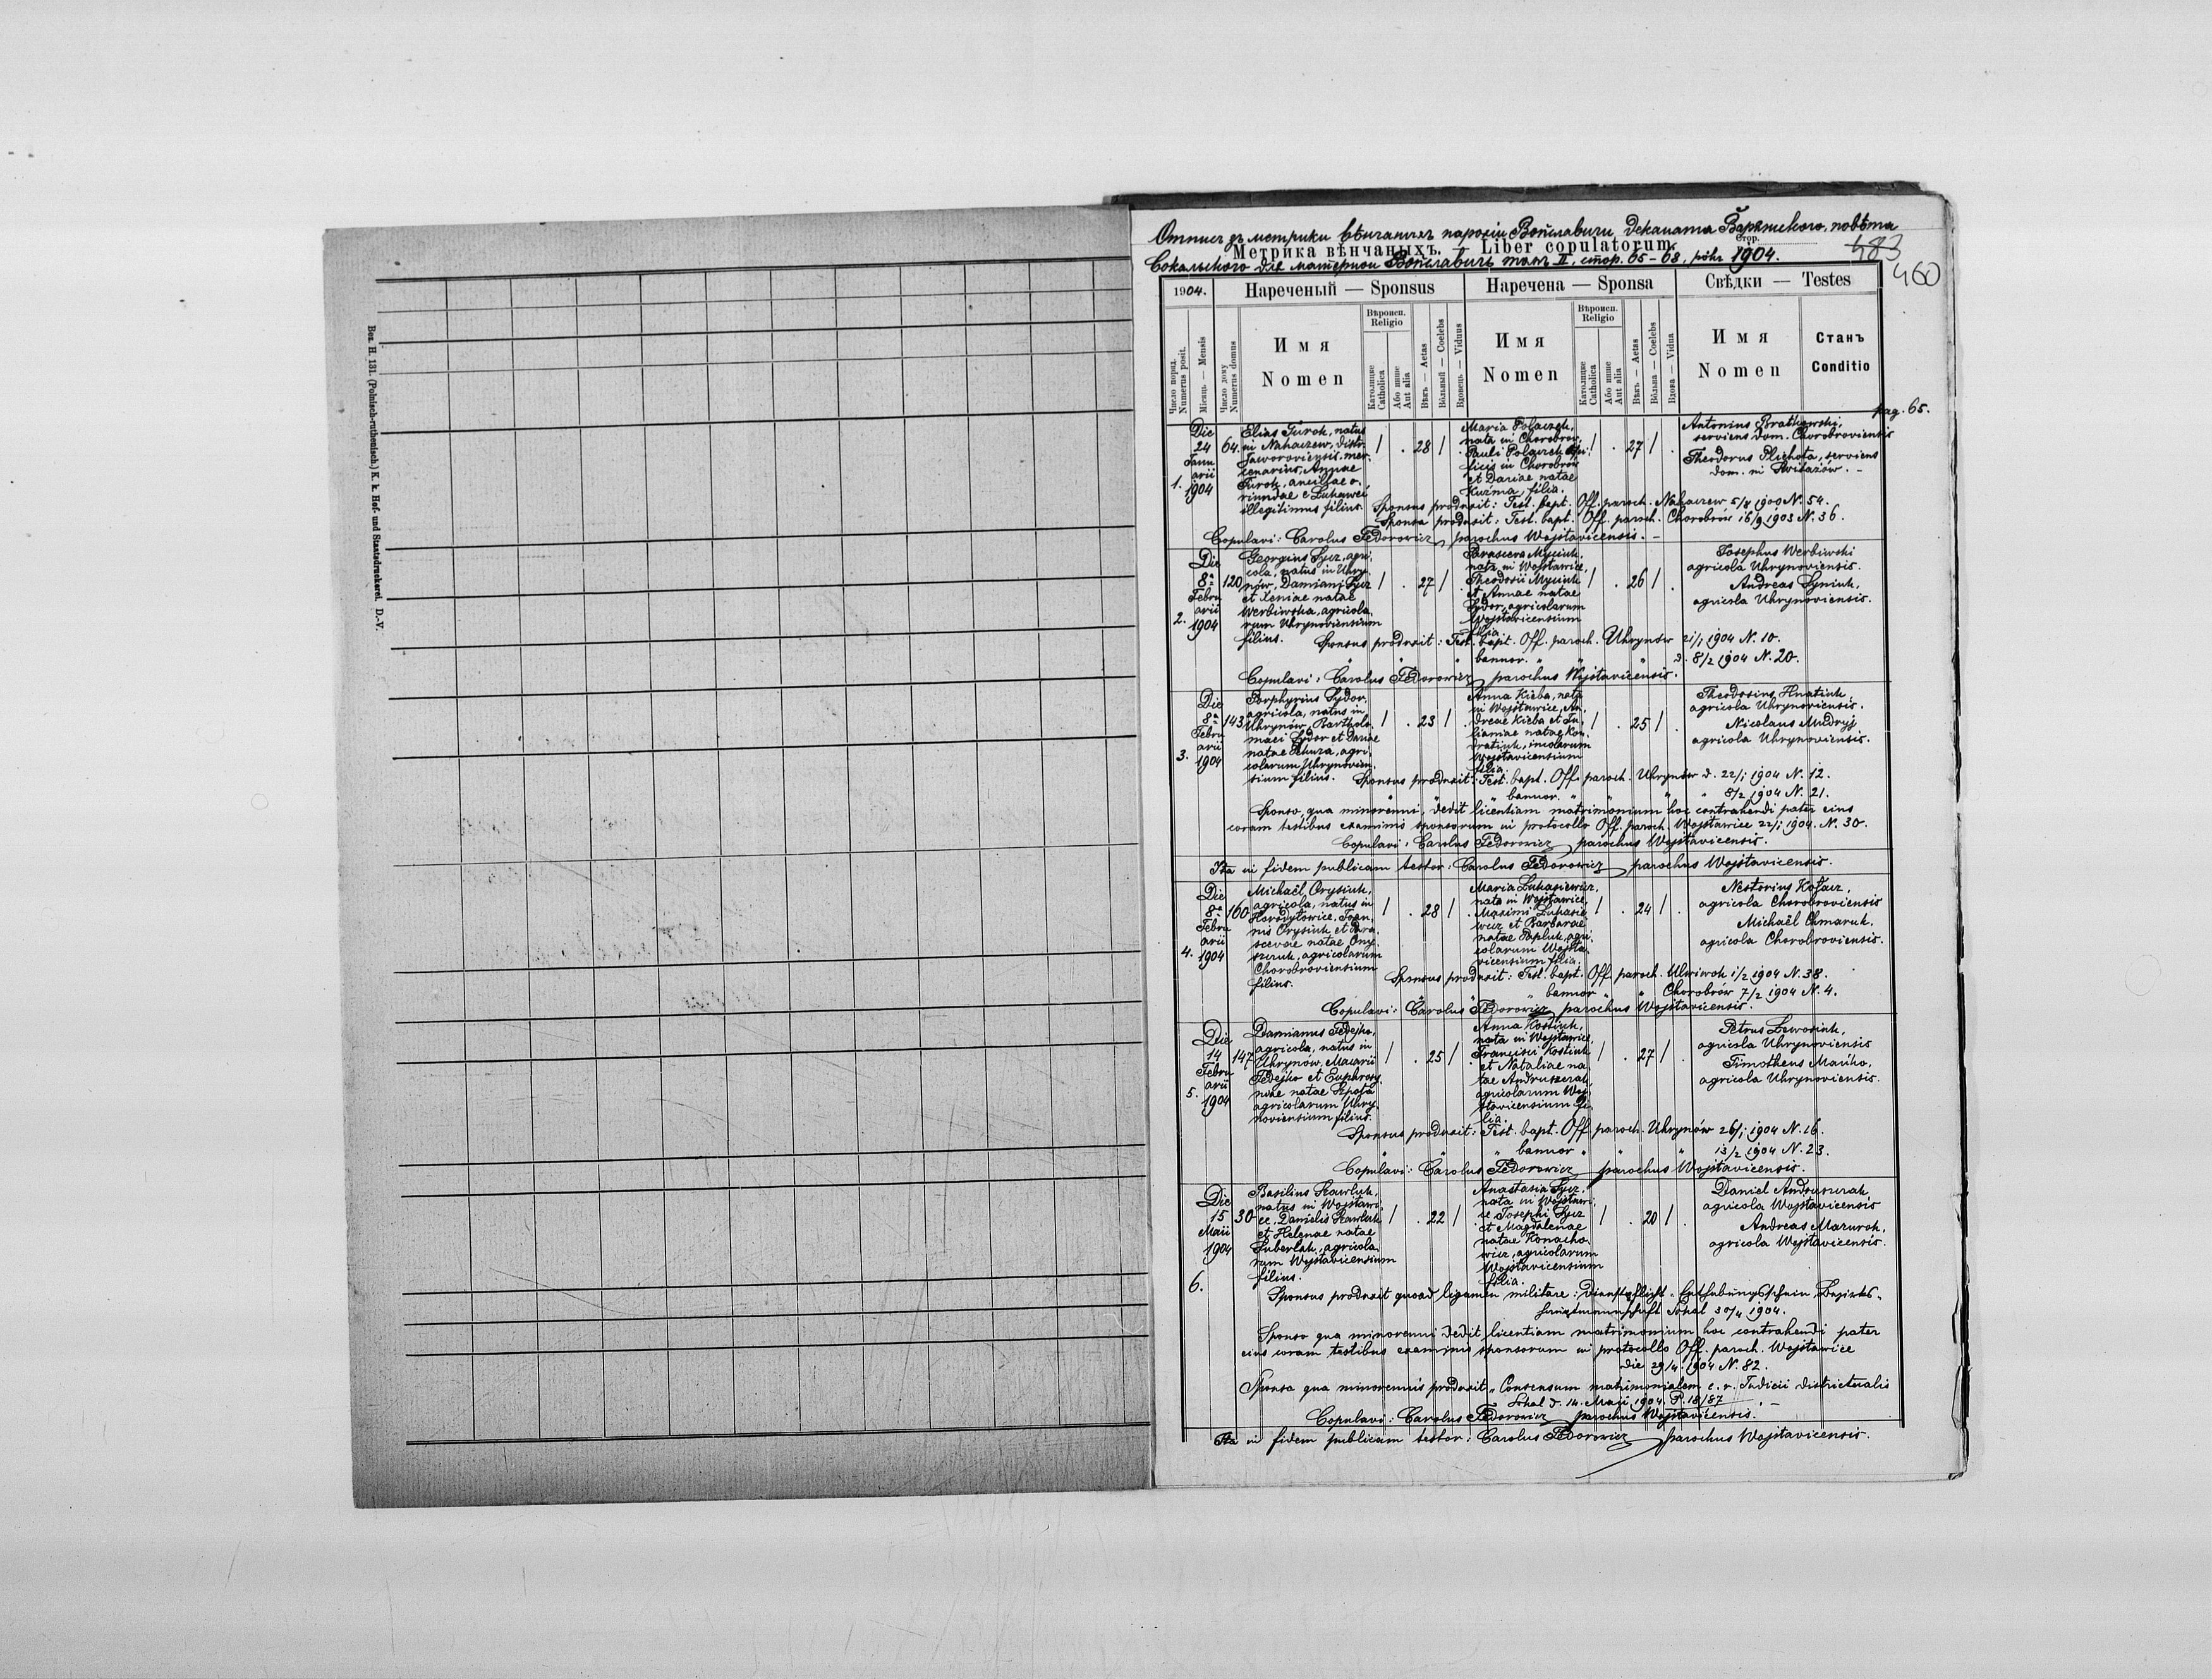 Отпис зъ метрики вѣнчаныхъ парохіи Войславичи деканата Варяжского, повѣта
Метрика вѣнчаныхъ. — Liber copulatorum.
Стор.
483
Сокальского для матерной Войславичъ томъ II, стор. 65-68, рôкъ 1904.
460
1904.
Нареченый — Sponsus
Наречена — Sponsa
Свѣдки — Testes
Число поряд.
Numerus posit.
Мѣсяць — Mensis
Число дому
Numerus domus
Имя
Nomen
Вѣроисп.
Religio
Католицке
Catholica
Або инше
Aut alia
Вѣкъ — Aetas
Вôльный — Coelebs
Вдовець — Viduus
Имя
Nomen
Вѣроисп.
Religio
Католицке
Catholica
Або инше
Aut alia
Вѣкъ — Aetas
Вôльна — Coelebs
Вдова — Vidua
Имя
Nomen
Станъ
Conditio
pag. 65.
1.
Die
24
Janu
arii
1904
64.
Elias Turok, natus
in Nahaczew, distr.
Jaworoviensis, mer.
cenarius, Annae
Turok, ancillae o.
riundae e
illegitimus filius.
/ . 28 /
Maria Polaczek,
nata in Chorobrow,
Pauli Polaczek opi.
ficis in Chorobrów
et Dariae natae
Kuźma, filia.
/ . 27 / .
Antonius Bratkowski,
serviens dom. Chorobroviensis
Theodorus Plichota, serviens
dom. in Switażów. -
Sponsus produxit: Test. bapt. Off. paroch. Nahaczew 5/8 1900 N. 54.
Sponsa produxit: Test. bapt. Off. paroch. Chorobrów 16/9 1903 N. 36.
Copulavi: Carolus Fedorowicz parochus Wojsławicensis. -
2.
Die
8ª
Febru
arii
1904
120
Georgius Sycz, agri.
cola, natus in Uhry.
nów, Damiani Sycz
et Xeniae natae
Werbiwska, agricola.
rum Uhrynoviensium
filius.
/ . 27 /
Parascera Myciuk,
nata in Wojsławice,
Theodosii Myciuk
et Annae natae
Sydor, agricolarum
Wojsławicensium
filia.
/ . 26 / .
Josephus Werbiwski
agricola Uhrynoviensis.
Andreas Syniuk,
agricola Uhrynoviensis.
Sponsus produxit: Test. bapt. Off. paroch. Uhrynów 21/1 1904 N. 10.
" " " bannor. " " " d. 8/2 1904 N. 20.
Copulavi: Carolus Fedorowicz parochus Wojsławicensis.
3.
Die
8ª
Febru
arii
1904
143
Porphyrius Sydor,
agricola, natus in
Uhrynów, Bartholo.
maei Sydor et Dariae
natae Dhura, agri.
colarum Uhrynovien.
sium filius.
/ . 23 /
Anna Kicba, nata
in Wojsławice, An.
dreae Kicba et Ju.
lianiae natae Kon.
dratiuk, incolarum
Wojsławicensium
filia.
/ . 25 / .
Theodosius Hnatiuk,
agricola Uhrynoviensis.
Nicolaus Mudryj
agricola Uhrynoviensis.
Sponsus produxit: Test. bapt. Off. paroch. Uhrynów d. 22/1 1904 N. 12.
" " " bannor. " " " 8/2 1904 N. 21.
Sponso, qua minorenni, dedit licentiam matrimonium hoc contrahendi pater eius
coram testibus examinis sponsorum in protocollo Off. paroch. Wojsławice 22/1 1904. N. 30.
Copulavi: Carolus Fedorowicz parochus Wojsławicensis.
Ita in fidem publicam testor: Carolus Fedorowicz parochus Wojsławicensis.
4.
Die
8ª
Febru
arii
1904
160
Michaël Orysiuk,
agricola, natus in
Horodyłowice, Joan.
nis Orysiuk et Para.
scevae natae Ony.
szczuk, agricolarum
Chorobroviensium
filius.
/ . 28 /
Maria Łukasiewicz,
nata in Wojsławice,
Maximi Łukasie
wicz et Barbarae
natae Papluk, agri.
colarum Wojsła.
vicensium filia.
/ . 24 / .
Nestorius Kołacz,
agricola Chorobroviensis
Michaël Chmaruk,
agricola Chorobroviensis.
Sponsus produxit: Test. bapt. Off. paroch. Ulwiwok 1/2 1904 N. 38.
" " " bannor " " Chorobrów 7/2 1904 N. 4.
Copulavi: Carolus Fedorowicz parochus Wojsławicensis.
5.
Die
14
Febru
arii
1904
147
Damianus Fedejko,
agricola, natus in
Uhrynów, Macarii
Fedejko et Euphrosy.
niae natae Szpota
agricolarum Uhry.
noviensium filius.
/ . 25 /
Anna Kostiuk,
nata in Wojsławice,
Francisci Kostiuk
et Nataliae na
tae Andruszczak,
agricolarum Woj.
sławicensium fi.
lia.
/ . 27 / .
Petrus Lewosiuk,
agricola Uhrynoviensis
Timotheus Mańko,
agricola Uhrynoviensis.
Sponsus produxit: Test. bapt. Off. paroch. Uhrynów 26/1 1904 N. 16.
" " " bannor " " " 13/2 1904 N. 23.
Copulavi: Carolus Fedorowicz parochus Wojsławicensis.
6.
Die
15
Maii
1904
30
Basilius Pawluk,
natus in Wojsławi.
ce, Danielis Pawluk
et Helenae natae
Suberlak, agricola.
rum Wojsławicensium
filius.
/ . 22 /
Anastasia Sycz,
nata in Wojsławi.
ce Josephi Sycz
et Magdalenae
natae Konacho.
wicz, agricolarum
Wojsławicensium
filia.
/ . 20 / .
Daniel Andruszczak,
agricola Wojsławicensis
Andreas Mazurok,
agricola Wojsławicensis.
Sponsus produxit quoad ligamen militare: Dienstpflicht-Enthebungsschein Bezirks-
hauptmannschaft Sokal 30/4 1904.
Sponso qua minorenni dedit licentiam matrimonium hoc contrahendi pater
eius coram testibus examinis sponsorum in protocollo Off. paroch. Wojsławice
die 29/4. 1904 N. 82.
Sponsa qua minorennis produxit „Consensum matrimonialem c. r. Judicii districtualis
Sokal d. 14. Maii 1904. P. 18/87. -
Copulavi: Carolus Fedorowicz parochus Wojsławicensis.
Ita in fidem publicam testor: Carolus Fedorowicz parochus Wojsławicensis.
Bez. H. 131. (Polnisch-ruthenisch.) K. k. Hof- und Staatsdruckerei. D.-V.